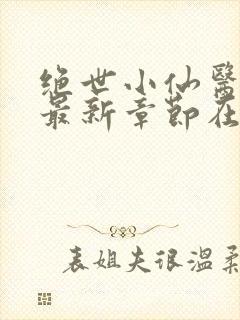 绝世小仙醫
最新章節在
表姐夫很温柔